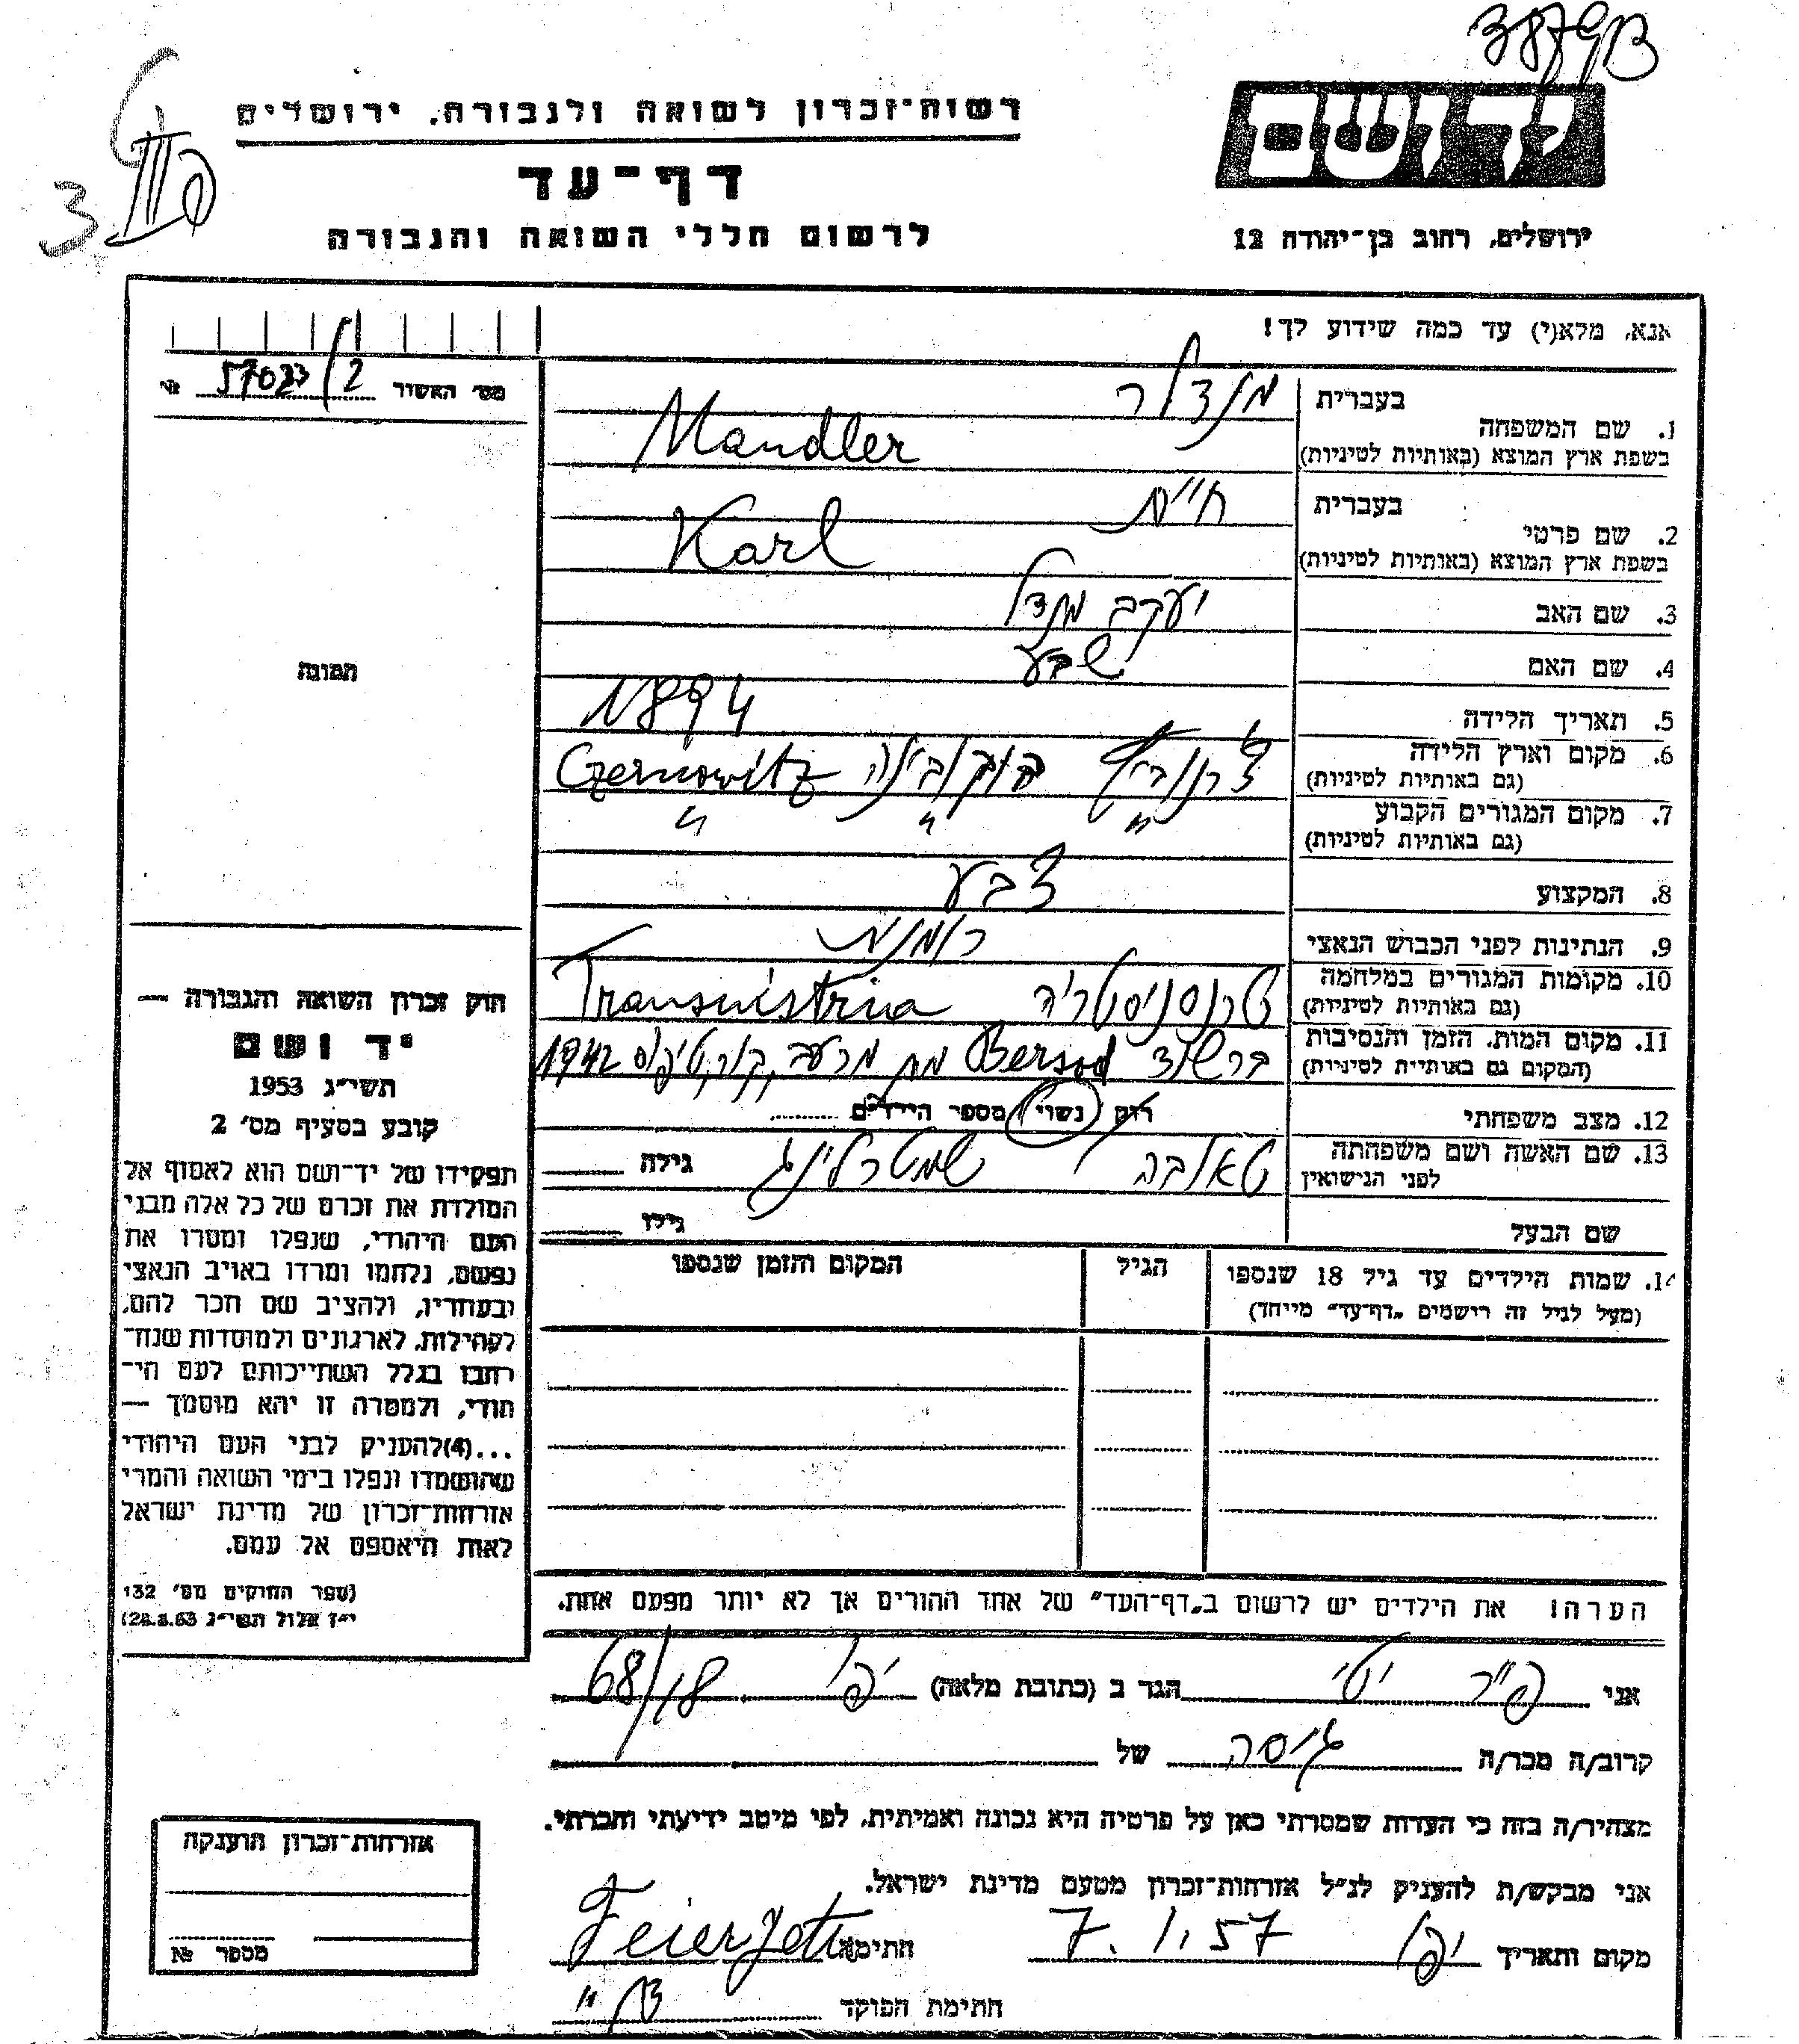 38793
רשות־זכרון לשואה ולגבורה, ירושלים
דף־עד
לרשום חללי השואה והגבורה
ידושם
ירושלים, רחוב בן־יהודה 12
3 III
אנא, מלא(י) עד כמה שידוע לך!
מס׳ האשור 57033/2 №
תמונה
1. שם המשפחה
בעברית מנדלר
בשפת ארץ המוצא (באותיות לטיניות) Mandler
2. שם פרטי
בעברית חיים
בשפת ארץ המוצא (באותיות לטיניות) Karl
3. שם האב יעקב מנדל
4. שם האם שבע
5. תאריך הלידה 1894
6. מקום וארץ הלידה צ׳רנוביץ בוקובינה Czernowitz
(גם באותיות לטיניות)
7. מקום המגורים הקבוע " " "
(גם באותיות לטיניות)
8. המקצוע צבע
9. הנתינות לפני הכבוש הנאצי רומנית
10. מקומות המגורים במלחמה טרנסניסטריה Transnistria
(גם באותיות לטיניות)
11. מקום המות, הזמן והנסיבות ברשד Bersad מת מרעב, 1942
(המקום גם באותיות לטיניות)
12. מצב משפחתי רוק נשוי מספר הילדים
13. שם האשה ושם משפחתה טאובה שטרלינג גילה
לפני הנישואין
שם הבעל גילו
14. שמות הילדים עד גיל 18 שנספו הגיל המקום והזמן שנספו
(מעל לגיל זה רישמים „דף־עד" מייחד)
הערה! את הילדים יש לרשום ב„דף־העד" של אחד ההורים אך לא יותר מפעם אחת.
חוק זכרון השואה והגבורה —
יד ושם
תשי״ג 1953
קובע בסעיף מס׳ 2
תפקידו של יד־ושם הוא לאסוף אל
המולדת את זכרם של כל אלה מבני
העם היהודי, שנפלו ומסרו את
נפשם, נלחמו ומרדו באויב הנאצי
ובעוזריו, ולהציב שם וזכר להם,
לקהילות, לארגונים ולמוסדות שנח־
רבו בגלל השתייכותם לעם הי־
הודי, ולמטרה זו יהא מוסמך —
...(4)להעניק לבני העם היהודי
שהושמדו ונפלו בימי השואה והמרי
אזרחות־זכרון של מדינת ישראל
לאות היאספם אל עמם.
(ספר החוקים מס׳ 132
י״ז אלול תשי״ג 28.8.53)
אני פייר יטי הגר ב (כתובת מלאה) יפו 68/18
קרוב/ה מכר/ה גיסה של
מצהיר/ה בזה כי העדות שמסרתי כאן על פרטיה היא נכונה ואמיתית, לפי מיטב ידיעתי והכרתי.
אני מבקש/ת להעניק לנ״ל אזרחות־זכרון מטעם מדינת ישראל.
מקום ותאריך יפו 7.1.57 חתימה Feier Jetti
חתימת הפוקד
אזרחות־זכרון הוענקה
מספר №